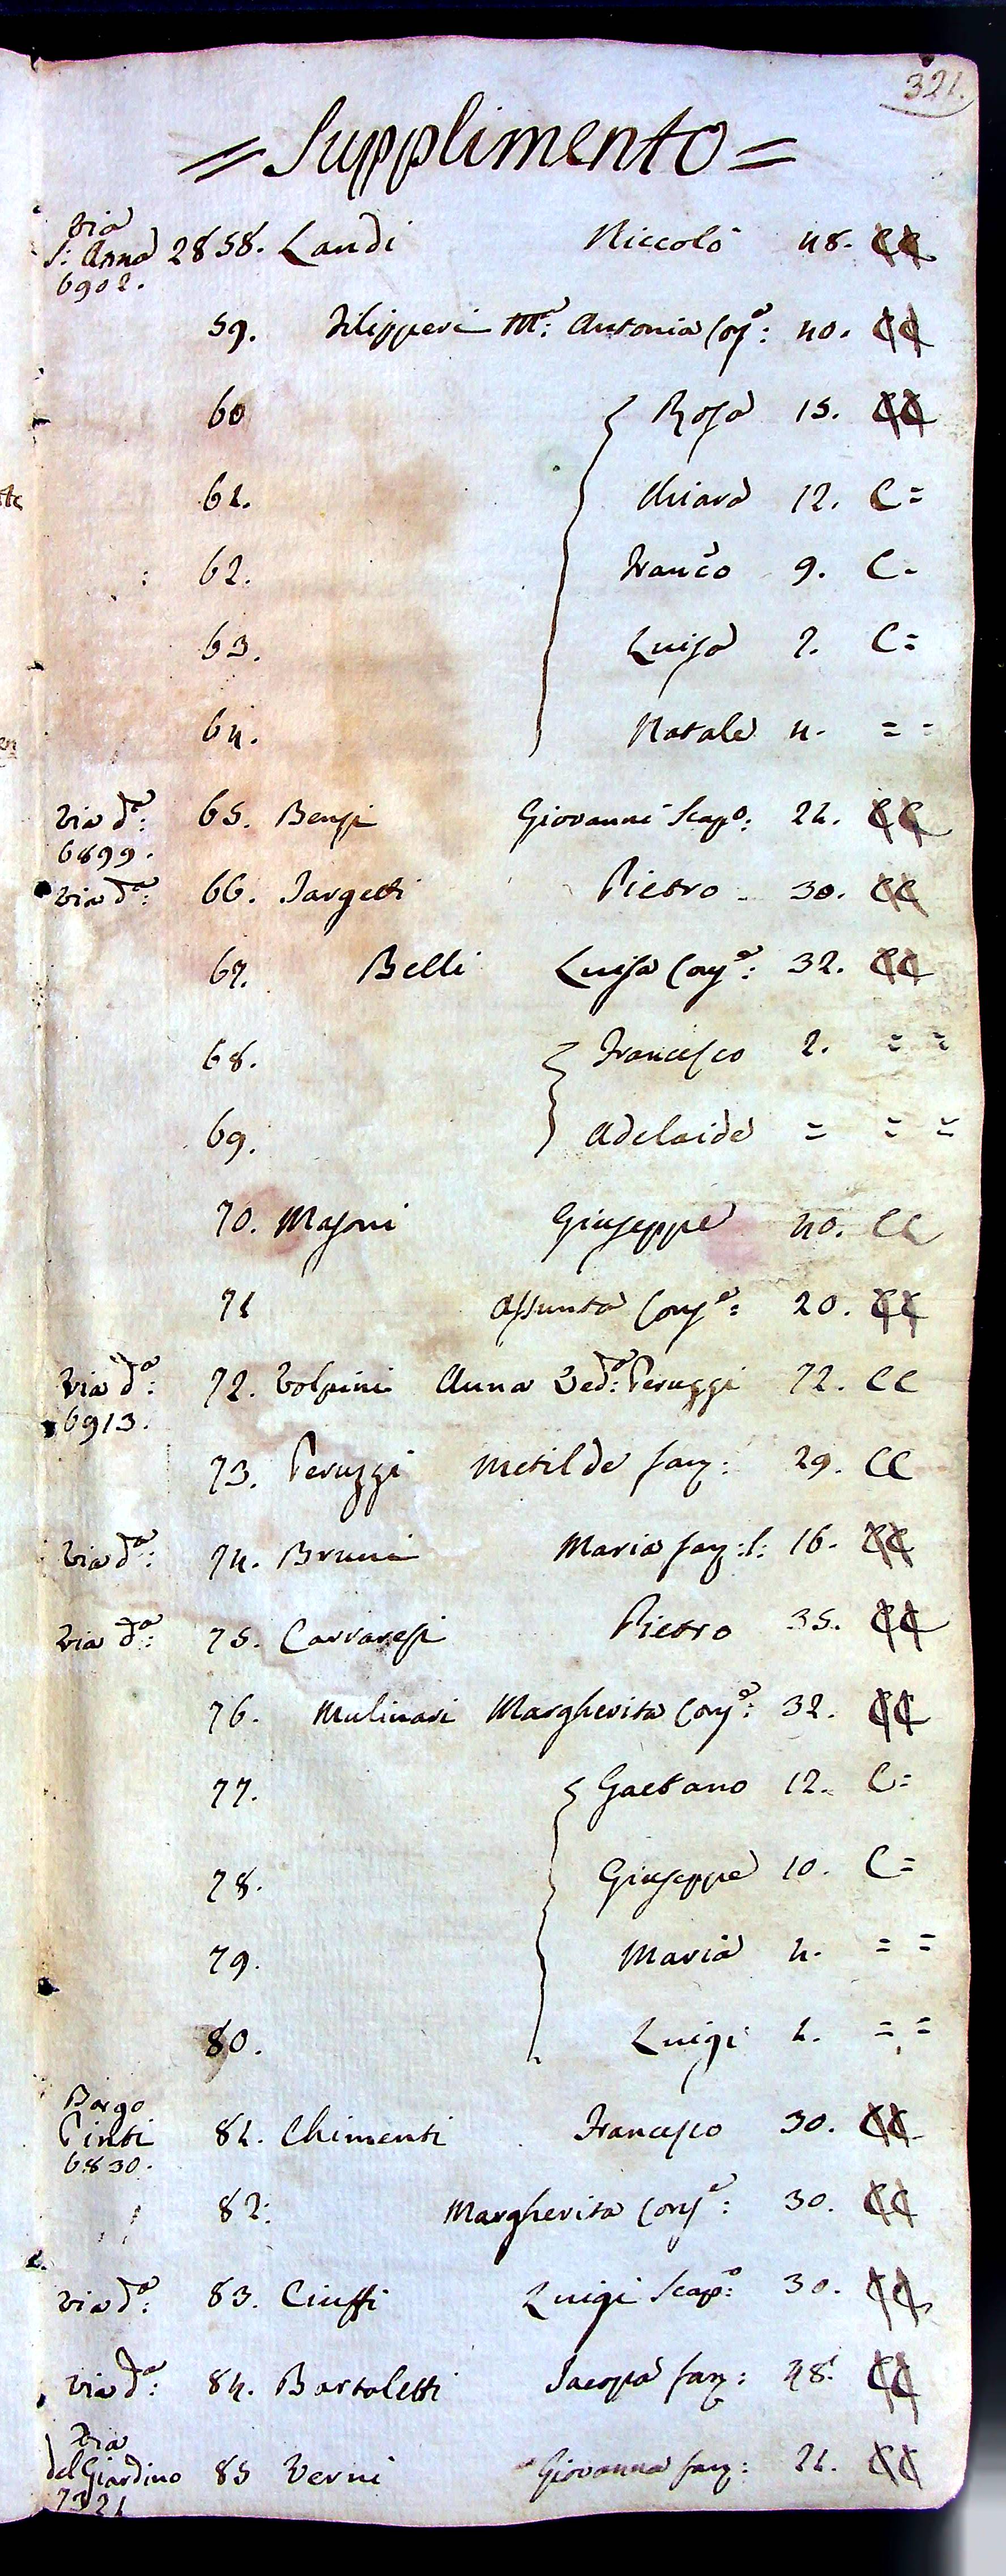 321.
= Supplimento =
Via
S: Anna 2858. Landi Niccolò 48. CC
6902.
59. Filipperi Mª: Antonia Conjª: 40. CC
60 Rosa 15. CC
61. Chiara 12. C =
62. Franco 9. C -
63. Luisa 7. C =
64. Natale 4. = =
Via dª: 65. Bensi Giovanni Scapº: 21. CC
6899.
Via dª: 66. Targetti Pietro 30. CC
67. Belli Luisa Conjª: 32. CC
68. Francesco 2. = =
69. Adelaide = = =
70. Masoni Giuseppe 40. CC
71 Assunta Conjª: 20. CC
Via dª: 72. Volpini Anna Vedª: Peruzzi 72. CC
6913.
73. Peruzzi Metilde fan: 29. CC
Via dª: 74. Bruni Maria fan: l: 16. CC
Via dª: 75. Carraresi Pietro 35. CC
76. Mulinari Margherita Conjª: 32. CC
77. Gaetano 12. C =
78. Giuseppe 10. C =
79. Maria 4. = =
80. Luigi 1. = =
Borgo
Pinti 81. Chimenti Francesco 30. CC
6830.
82: Margherita Conjª: 30. CC
Via dª: 83. Ciuffi Luigi Scapº: 30. CC
Via dª: 84. Bartoletti Jacopa fan: 48. CC
Via
del Giardino 85 Verni Giovanna fan: 21. CC
7321